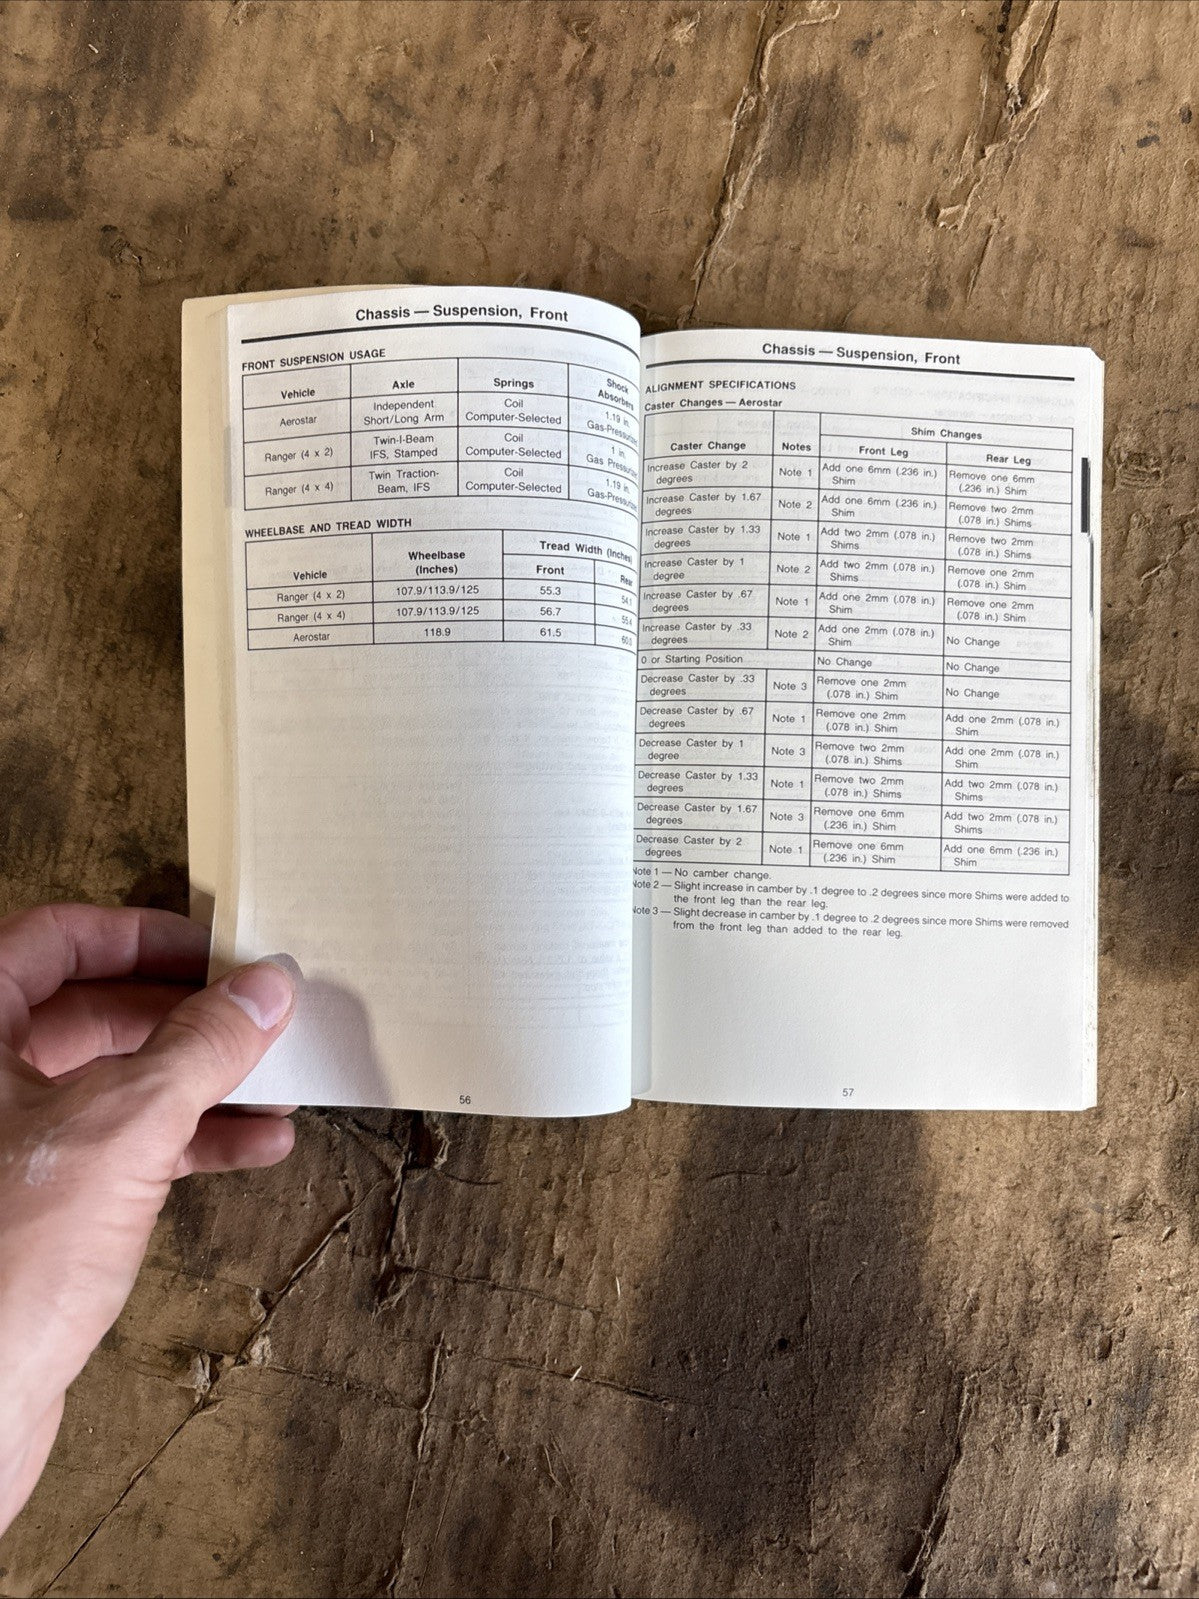 Chassis — Suspension, Front
FRONT SUSPENSION USAGE
Vehicle Axle Springs Shock
Absorbers
Aerostar Independent Coil 1.19 in.
Short/Long Arm Computer-Selected
Ranger (4 x 2) Twin-I-Beam Coil 1 in.
IFS, Stamped Computer-Selected Gas
Ranger (4 x 4) Twin Traction- Coil 1.19 in.
Beam, IFS Computer-Selected
WHEELBASE AND TREAD WIDTH
Vehicle Wheelbase Tread Width (Inches)
(Inches) Front Rear
Ranger (4 x 2) 107.9/113.9/125 55.3
Ranger (4 x 4) 107.9/113.9/125 56.7
Aerostar 118.9 61.5
56
Chassis — Suspension, Front
ALIGNMENT SPECIFICATIONS
Caster Changes — Aerostar
Caster Change Notes Shim Changes
Front Leg Rear Leg
Increase Caster by 2 Note 1 Add one 6mm (.236 in.) Remove one 6mm
degrees Shim (.236 in.) Shim
Increase Caster by 1.67 Note 2 Add one 6mm (.236 in.) Remove two 2mm
degrees Shim (.078 in.) Shims
Increase Caster by 1.33 Note 1 Add two 2mm (.078 in.) Remove two 2mm
degrees Shims (.078 in.) Shims
Increase Caster by 1 Note 2 Add two 2mm (.078 in.) Remove one 2mm
degree Shims (.078 in.) Shim
Increase Caster by .67 Note 1 Add one 2mm (.078 in.) Remove one 2mm
degrees Shim (.078 in.) Shim
Increase Caster by .33 Note 2 Add one 2mm (.078 in.) No Change
degrees Shim
0 or Starting Position No Change No Change
Decrease Caster by .33 Note 3 Remove one 2mm No Change
degrees (.078 in.) Shim
Decrease Caster by .67 Note 1 Remove one 2mm Add one 2mm (.078 in.)
degrees (.078 in.) Shim Shim
Decrease Caster by 1 Note 3 Remove two 2mm Add one 2mm (.078 in.)
degree (.078 in.) Shims Shim
Decrease Caster by 1.33 Note 1 Remove two 2mm Add two 2mm (.078 in.)
degrees (.078 in.) Shims Shims
Decrease Caster by 1.67 Note 3 Remove one 6mm Add two 2mm (.078 in.)
degrees (.236 in.) Shim Shims
Decrease Caster by 2 Note 1 Remove one 6mm Add one 6mm (.236 in.)
degrees (.236 in.) Shim Shim
Note 1 — No camber change.
Note 2 — Slight increase in camber by .1 degree to .2 degrees since more Shims were added to
the front leg than the rear leg.
Note 3 — Slight decrease in camber by .1 degree to .2 degrees since more Shims were removed
from the front leg than added to the rear leg.
57